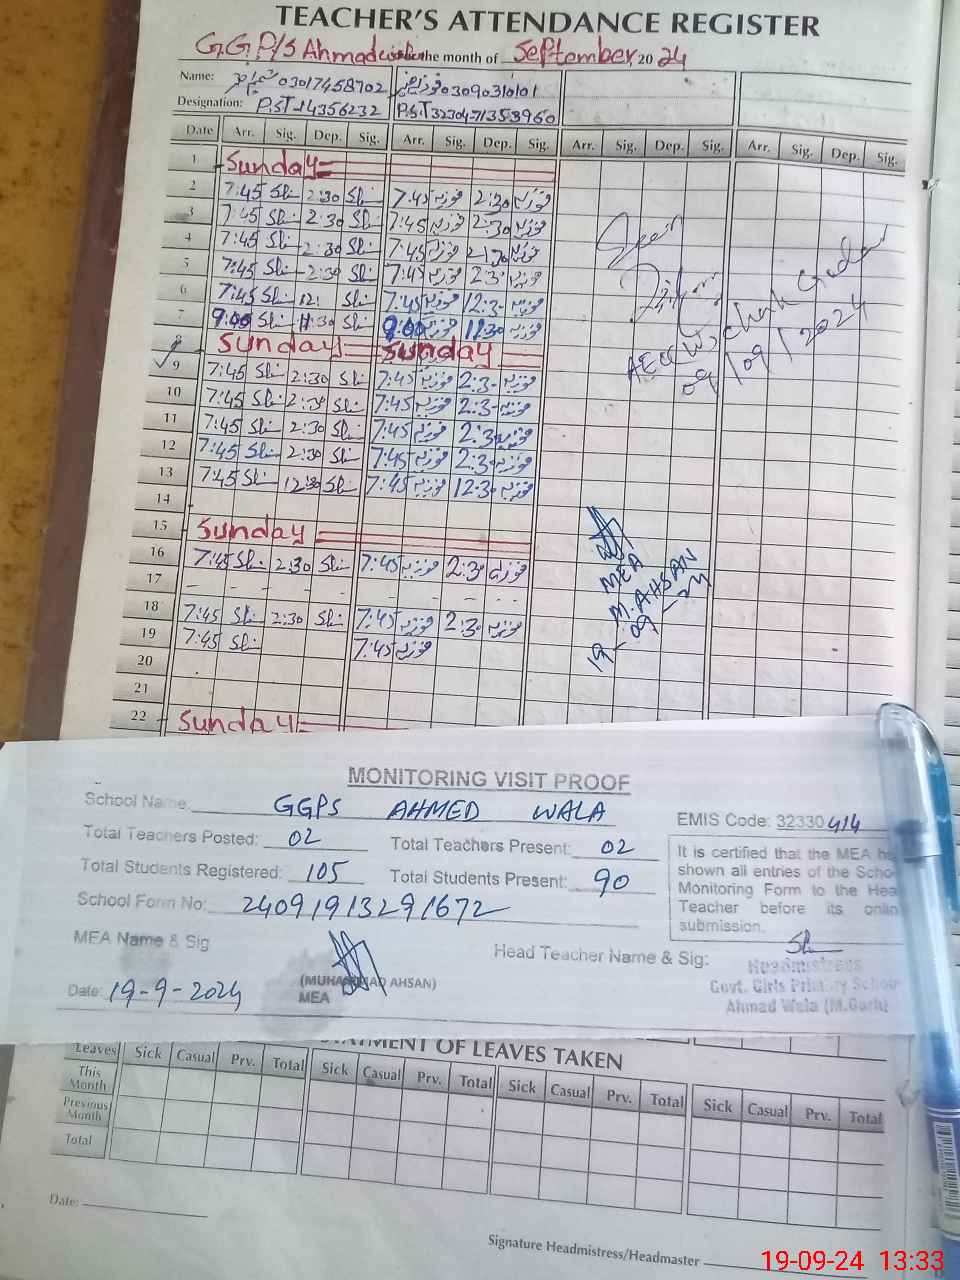 TEACHER'S ATTENDANCE REGISTER
G.G.P/S the month of September, 2024
Name: 03017458702 03090310101
Designation: P.S.T 14356232 P.S.T 32304-71358960
Date Arr. Sig. Dep. Sig. Arr. Sig. Dep. Sig. Arr. Sig. Dep. Sig. Arr. Sig. Dep. Sig.
1 Sunday
2 7:45 2:30 7:45 فوزیہ 2:30 فوزیہ
3 7:45 2:30 7:45 فوزیہ 2:30 فوزیہ
4 7:45 2:30 7:45 فوزیہ 2:30 فوزیہ
5 7:45 2:30 7:45 فوزیہ 2:3- فوزیہ
6 7:45 12: 7:45 فوزیہ 12:3- فوزیہ
7 9:00 11:30 9:00 فوزیہ 11:30 فوزیہ
8 Sunday Sunday
9 7:45 2:30 7:45 فوزیہ 2:3- فوزیہ
10 7:45 2:30 7:45 فوزیہ 2:3- فوزیہ
11 7:45 2:30 7:45 فوزیہ 2:3- فوزیہ
12 7:45 2:30 7:45 فوزیہ 2:3- فوزیہ
13 7:45 12:30 7:45 فوزیہ 12:30 فوزیہ
14
15 Sunday
16 7:45 2:30 7:45 فوزیہ 2:30 فوزیہ
17 - - - - - - - -
18 7:45 2:30 7:45 فوزیہ 2:30 فوزیہ
19 7:45 7:45 فوزیہ
20
21
22 Sunday
Seen
AEO
09/09/2024
MEA
M.AHSAN
19-09-24
MONITORING VISIT PROOF
School Name: GGPS AHMED WALA
EMIS Code: 32330414
Total Teachers Posted: 02 Total Teachers Present: 02
Total Students Registered: 105 Total Students Present: 90
School Form No: 24091913291672
It is certified that the MEA ha
shown all entries of the Scho
Monitoring Form to the Hea
Teacher before its onlin
submission.
MEA Name & Sig
Head Teacher Name & Sig:
(MUHAMMAD AHSAN)
MEA
Date: 19-9-2024
Headmistress
Govt. Girls Primary School
Ahmad Wala (M.Garh)
OF LEAVES TAKEN
Leaves Sick Casual Prv. Total Sick Casual Prv. Total Sick Casual Prv. Total Sick Casual Prv. Total
This Month
Previous Month
Total
Date:
Signature Headmistress/Headmaster
19-09-24 13:33